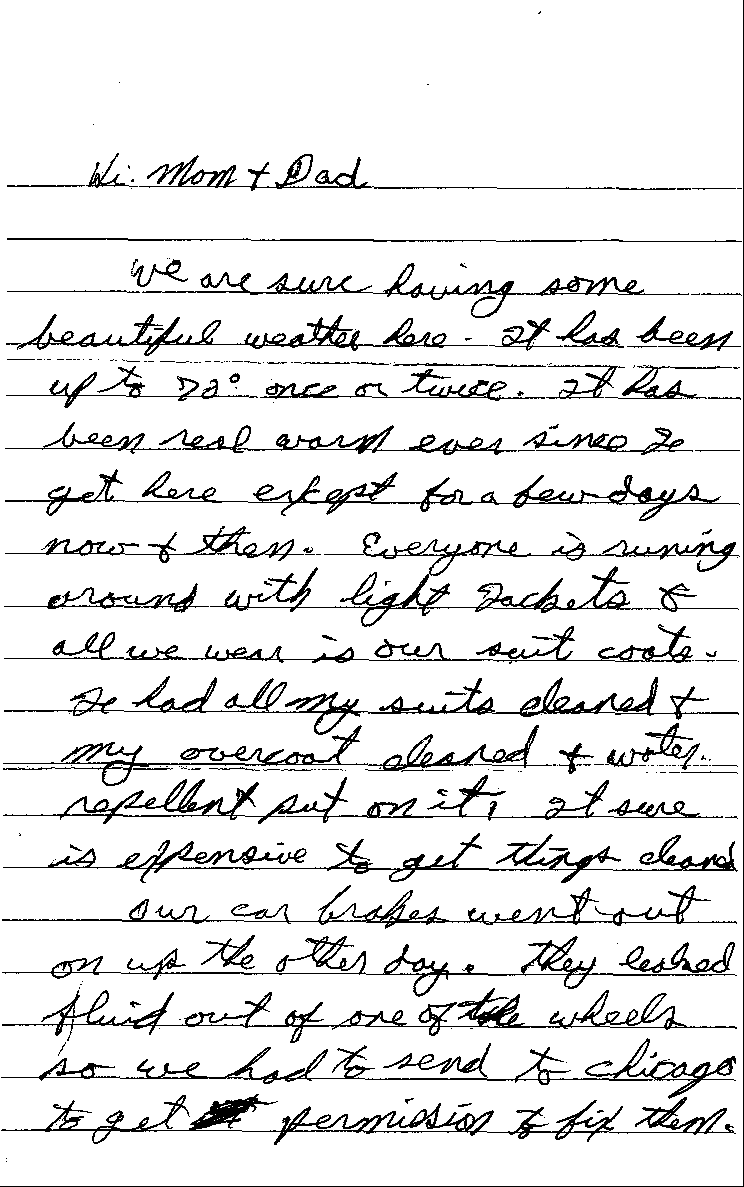 Hi. Mom + Dad
We are sure having some
beautiful weather here. It has been
up to 72° once or twice. It has
been real warm ever since I
got here except for a few days
now + then. Everyone is runing
around with light Jackets &
all we wear is our suit coats.
I had all my suits cleaned +
my overcoat cleaned + water
repellent put on it, It sure
is expensive to get things cleaned
Our car brakes went out
on up the other day. They leaked
fluid out of one of the wheels
so we had to send to chicago
to get permission to fix them.